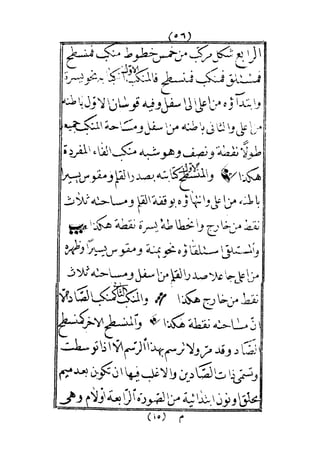 (٥٦)
الرابع شكل مركب من خمس خطوط منكب فمنسطح
فمستلق فمنكب فمنسطح فالمنكب الاول كتابته نحو يسرة
وابتداؤه من اعلى الى اسفل وفيه قوسان الاول باطنه
من اعلى والثانى باطنه من اسفل ومساحة المنكب جميعه
طولاً نقطة ونصف وهو شبه منكب الفاء المفردة
هكذا والمنسطح الاول كتابته بصدر القلم ومقوس يسيراً
باطنه من اعلى وانتهاؤه بوقفة القلم ومساحته ثلاث
نقط من خارج وانحطاطه يسرة نقطة هكذا
والمستلق استلقاؤه نحو يمنة ومقوس يسيراً وظهره
من اعلى جاعلا صدر القلم من اسفل ومساحته ثلاث
نقط من خارج هكذا والمنكب الثانى كمنكب الصاد الا
ان مساحته نقطة هكذا والمنسطح الاخر كمنسطح
الصاد وقد مر ولا ترسم بهذا الرسم الا اذا توسطت
وتسمى ذات الصادين والاغلب فيها ان تكون بعد ميم
محلق ونون ابتدائية من الصورة الرابعة او لام وهى
م (١٥)